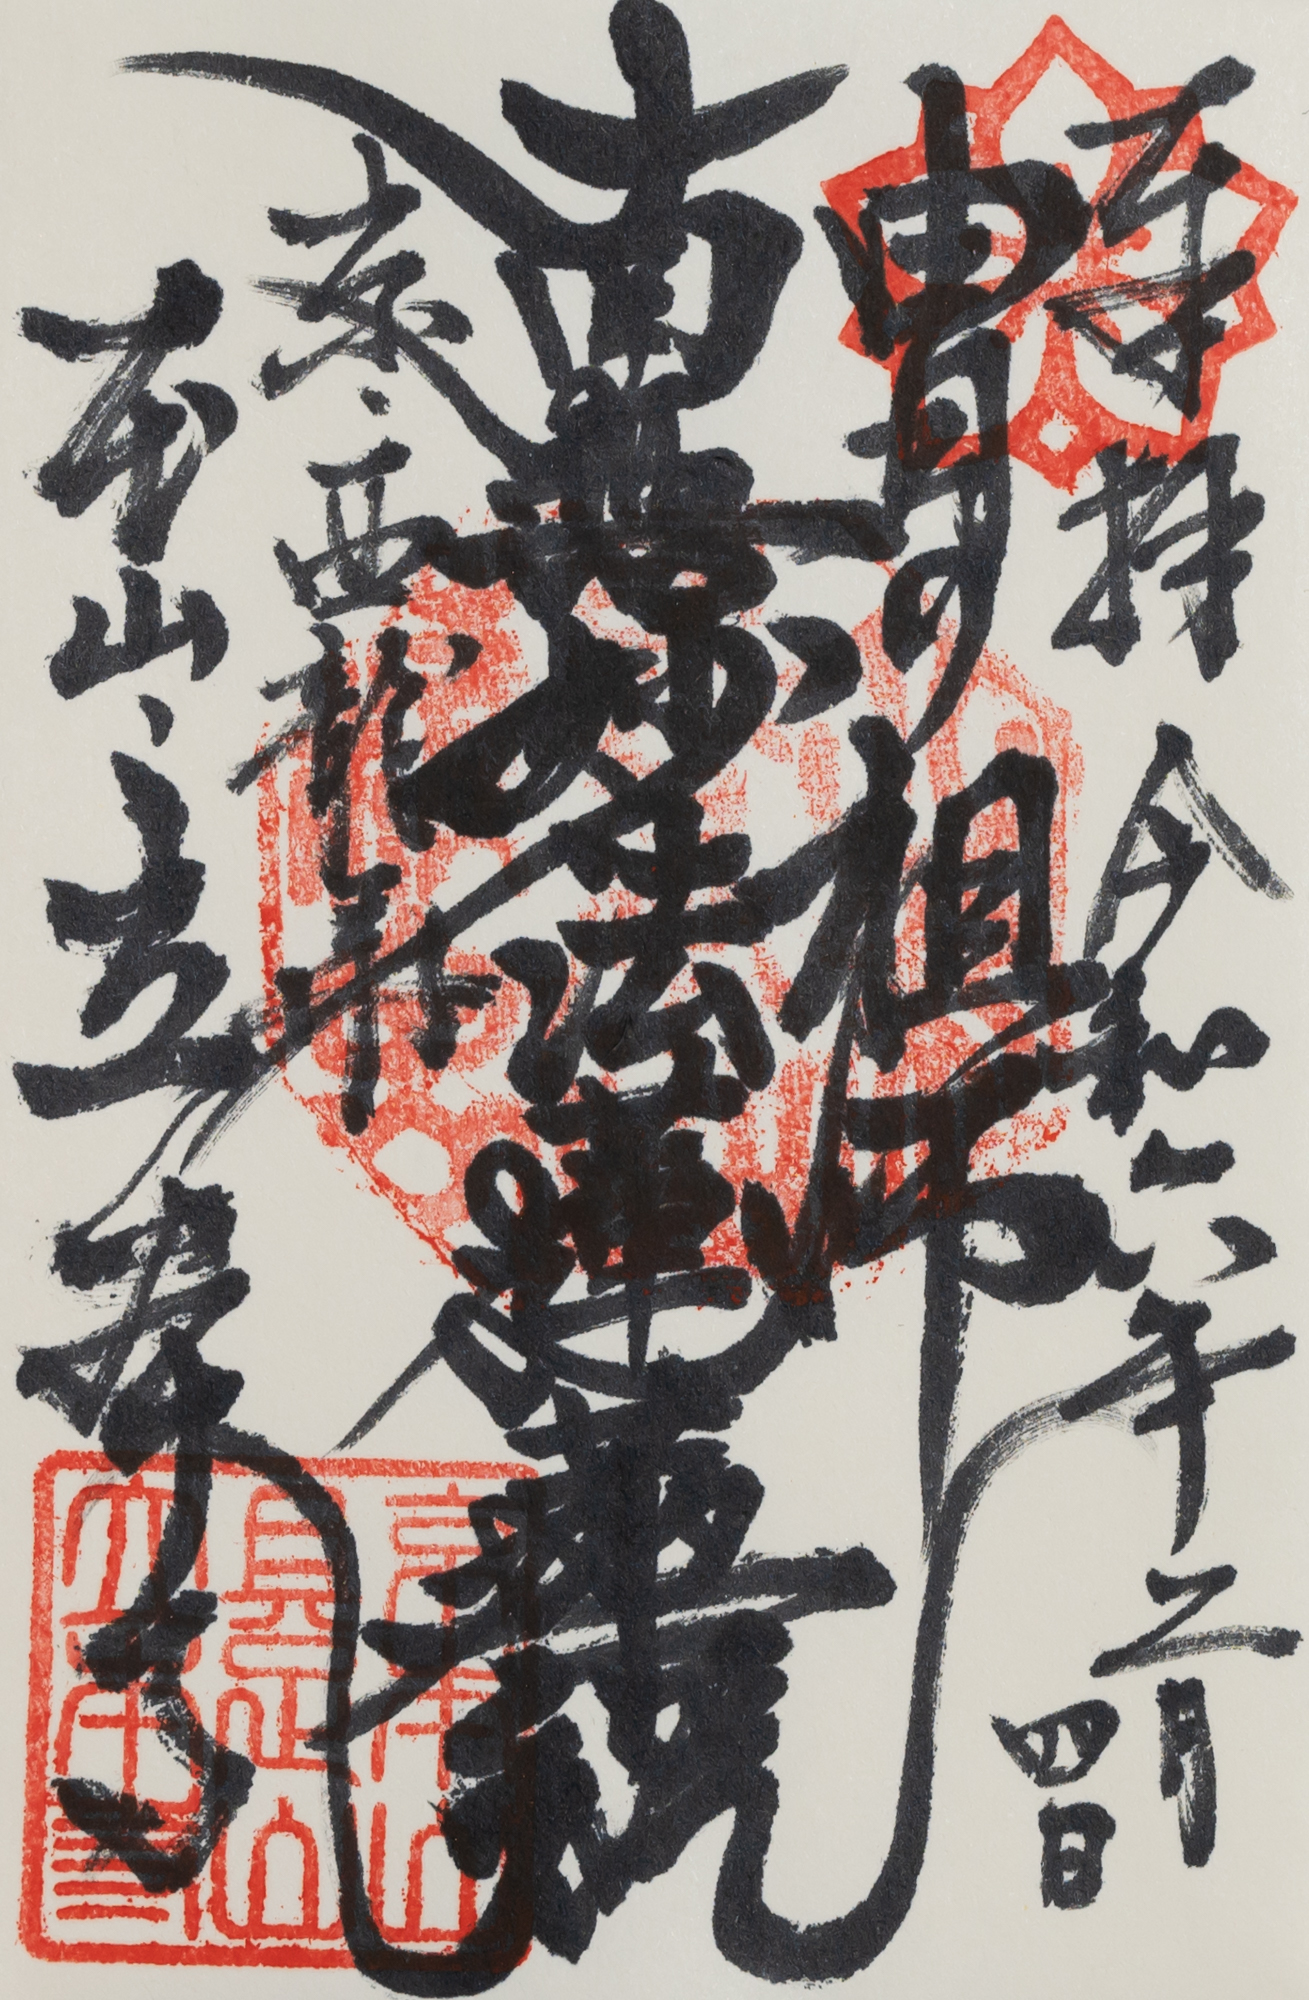 奉拝 令和六年二月
四日
冑の祖師
南無妙法蓮華経
京、西龍華
本山、立本寺
京本山
具足山